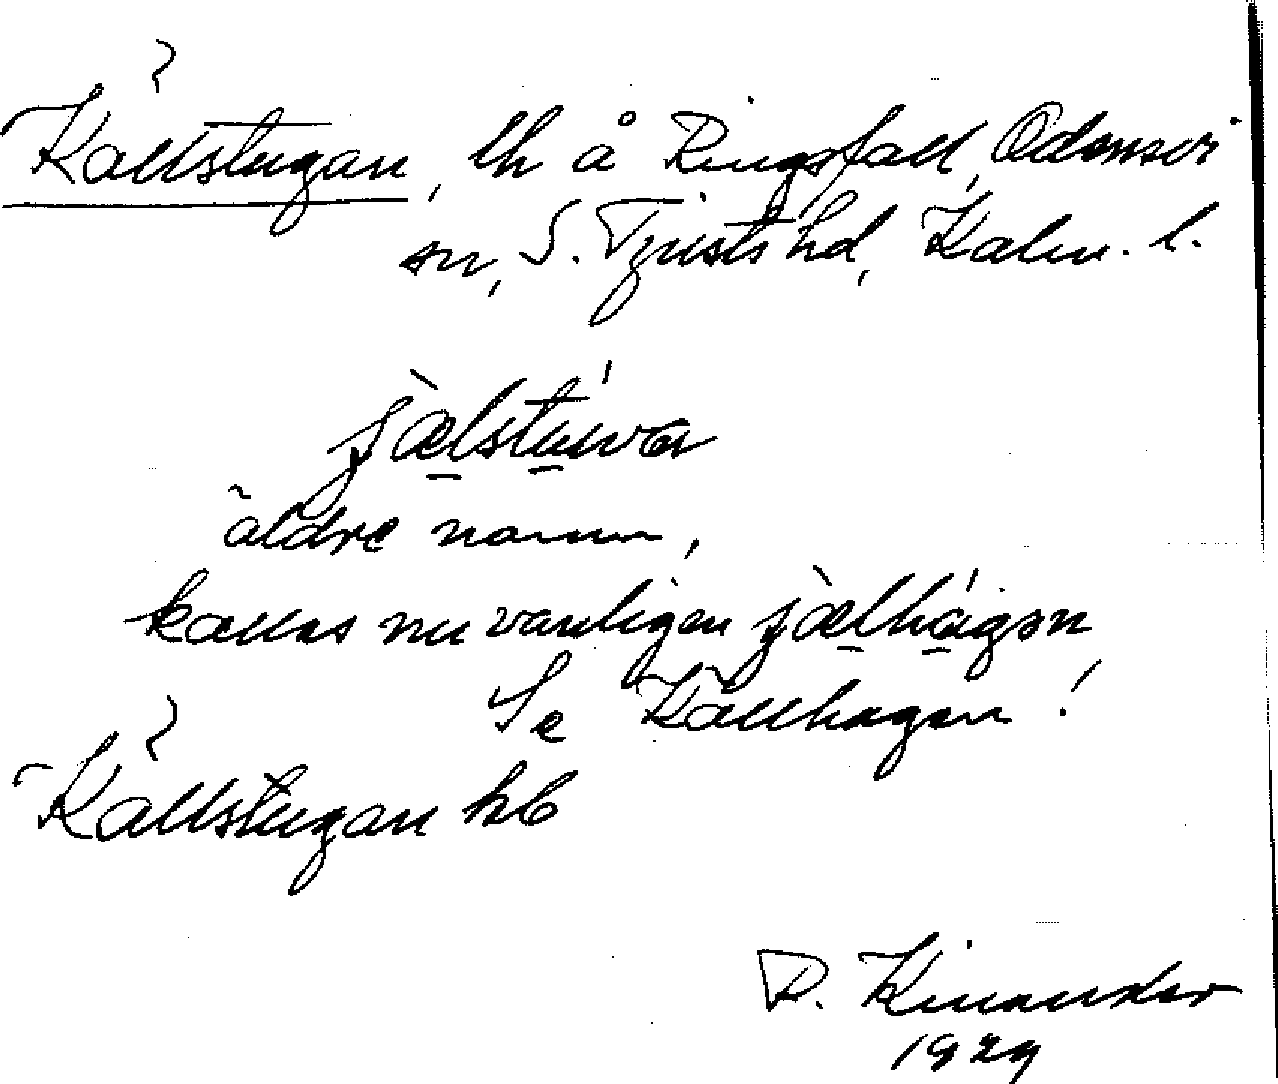 Källstugan, lh å Ringsfall, Odensvi
sn, S. Tjusts hd, Kalm. l.
jælstuwa
äldre namn,
kallas nu vanligen jælhagən
Se Källhagen!
Källstugan kb
R. Kinander
1929